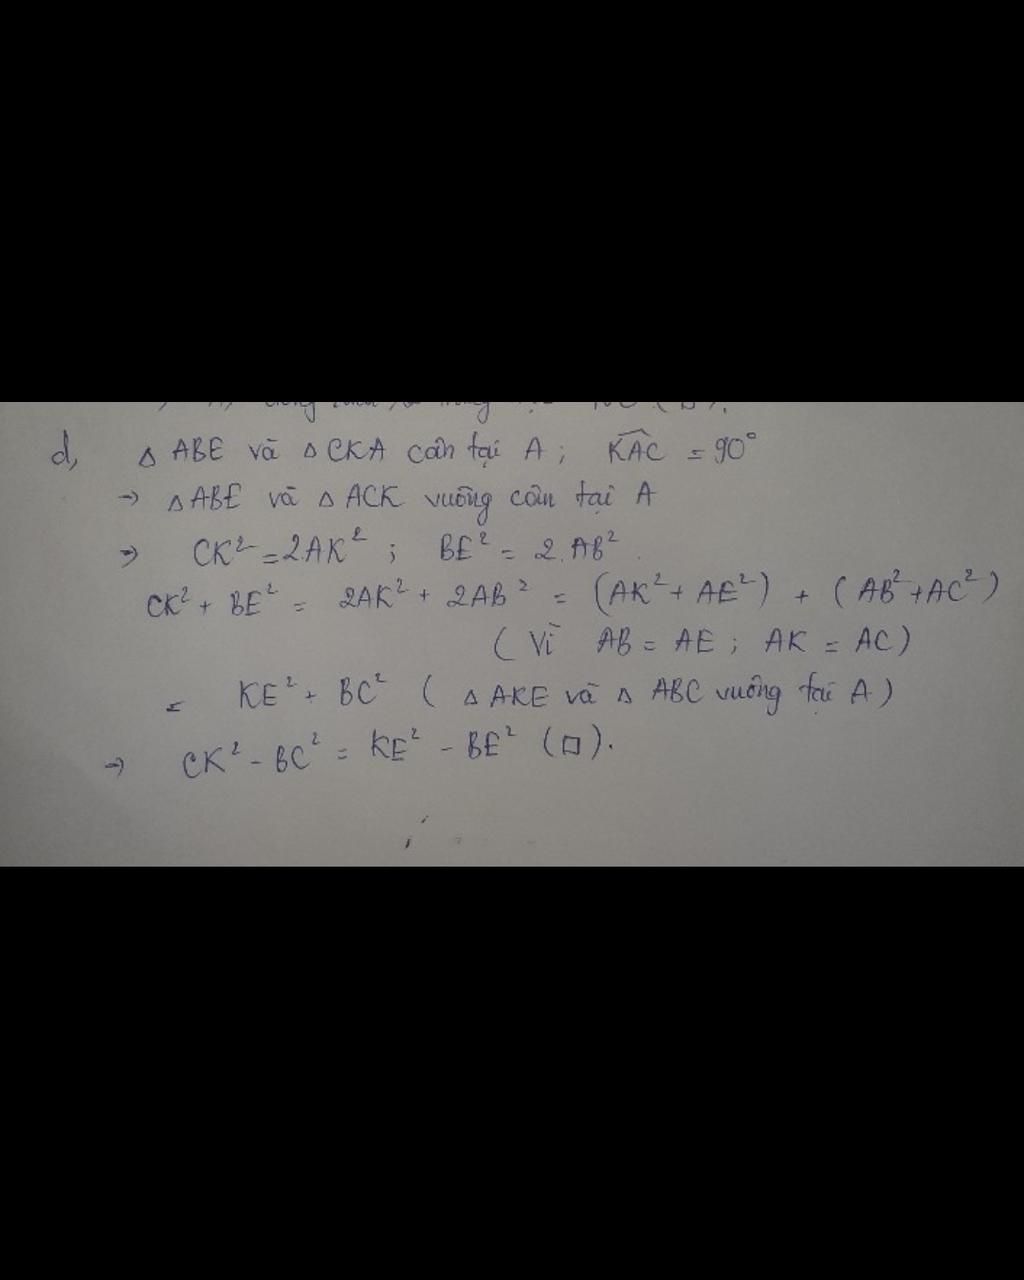 d, △ ABE và △ CKA cân tại A ; \widehat{KAC} = 90°
→ △ ABE và △ ACK vuông cân tại A
→ CK² = 2AK² ; BE² = 2.AB².
CK² + BE² = 2AK² + 2AB² = (AK² + AE²) + (AB² + AC²)
(Vì AB = AE ; AK = AC)
= KE² + BC² (△ AKE và △ ABC vuông tại A)
→ CK² - BC² = KE² - BE² (□).